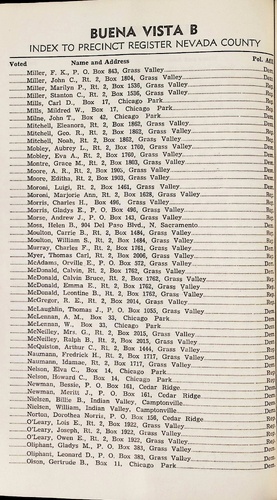 BUENA VISTA B
INDEX TO PRECINCT REGISTER NEVADA COUNTY
Voted Name and Address Pol. Affl
Miller, F. K., P. O. Box 843, Grass Valley
Miller, John C., Rt. 2, Box 1804, Grass Valley
Miller, Marilyn P., Rt. 2, Box 1536, Grass Valley
Miller, Stanton C., Rt. 2, Box 1536, Grass Valley
Mills, Carl D., Box 17, Chicago Park
Mills, Mildred W., Box 17, Chicago Park
Milne, John T., Box 42, Chicago Park
Mitchell, Eleonora, Rt. 2, Box 1862, Grass Valley
Mitchell, Geo. R., Rt. 2, Box 1862, Grass Valley
Mitchell, Noah, Rt. 2, Box 1862, Grass Valley
Mobley, Aubrey L., Rt. 2, Box 1769, Grass Valley
Mobley, Eva A., Rt. 2, Box 1769, Grass Valley
Montre, Grace M., Rt. 2, Box 1803, Grass Valley
Moore, A. R., Rt. 2, Box 1905, Grass Valley
Moore, Ediths, Rt. 2, Box 1933, Grass Valley
Moroni, Luigi, Rt. 2, Box 1461, Grass Valley
Moroni, Marjorie Ann, Rt. 2, Box 1628, Grass Valley
Morris, Charles H., Box 496, Grass Valley
Morris, Gladys E., P. O. Box 496, Grass Valley
Morse, Andrew J., P. O. Box 143, Grass Valley
Moss, Helen B., 904 Del Paso Blvd., N. Sacramento
Moulton, Carrie B., Rt. 2, Box 1484, Grass Valley
Moulton, William S., Rt. 2, Box 1484, Grass Valley
Murray, Charles F., Rt. 2, Box 1761, Grass Valley
Myer, Thomas Carl, Rt. 2, Box 2006, Grass Valley
McAdams, Orville E., P. O. Box 572, Grass Valley
McDonald, Calvin, Rt. 2, Box 1762, Grass Valley
McDonald, Calvin Bruce, Rt. 2, Box 1762, Grass Valley
McDonald, Emma E., Rt. 2, Box 1762, Grass Valley
McDonald, Leontine B., Rt. 2, Box 1763, Grass Valley
McGregor, R. E., Rt. 2, Box 2014, Grass Valley
McLaughlin, Thomas J., P. O. Box 1055, Grass Valley
McLennan, A. M., Box 33, Chicago Park
McLennan, W., Box 33, Chicago Park
McNeilley, Mrs. G., Rt. 2, Box 2015, Grass Valley
McNeilley, Ralph B., Rt. 2, Box 2015, Grass Valley
McQuiston, Arthur C., Rt. 2, Box 1444, Grass Valley
Naumann, Fredrick H., Rt. 2, Box 1717, Grass Valley
Naumann, Idamae, Rt. 2, Box 1717, Grass Valley
Nelson, Elva C., Box 14, Chicago Park
Nelson, Howard C., Box 14, Chicago Park
Newman, Bessie, P. O. Box 161, Cedar Ridge
Newman, Meritt J., P. O. Box 161, Cedar Ridge
Nielsen, Billie B., Indian Valley, Camptonville
Nielsen, William, Indian Valley, Camptonville
Norton, Dorothea Norris, P. O. Box 156, Cedar Ridge
O'Leary, Lois E., Rt. 2, Box 1922, Grass Valley
O'Leary, Joseph, Rt. 2, Box 1922, Grass Valley
O'Leary, Owen E., Rt. 2, Box 1922, Grass Valley
Oliphant, Gladys M., P. O. Box 383, Grass Valley
Oliphant, Leonard D., P. O. Box 383, Grass Valley
Olson, Gertrude B., Box 11, Chicago Park